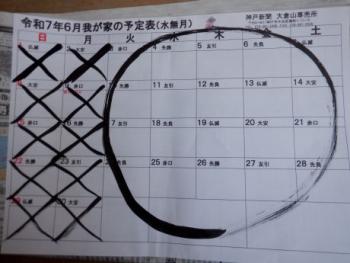 令和7年6月我が家の予定表(水無月)
神戸新聞 大倉山専売所
日 月 火 水 木 金 土
1 仏滅 2 大安 4 先勝 5 友引 6 先負 7 仏滅
11 友引 12 先負 13 仏滅 14 大安
18 先負 19 仏滅 20 大安 21 赤口
22 先勝 23 友引 25 赤口 26 先勝 27 友引 28 先負
29 仏滅 30 大安